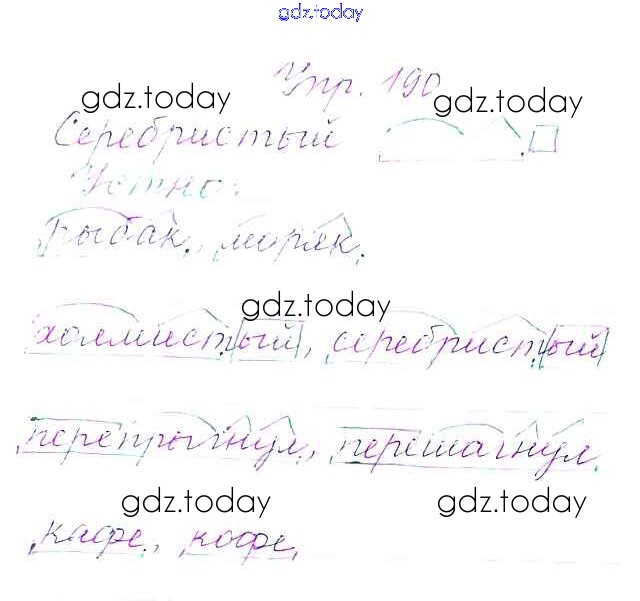 gdz.today
Упр. 190
gdz.today gdz.today
Серебристый
Устно:
Рыбак, моряк.
gdz.today
холмистый, серебристый
перепрыгнул, перешагнул.
gdz.today gdz.today
кафе, кофе.